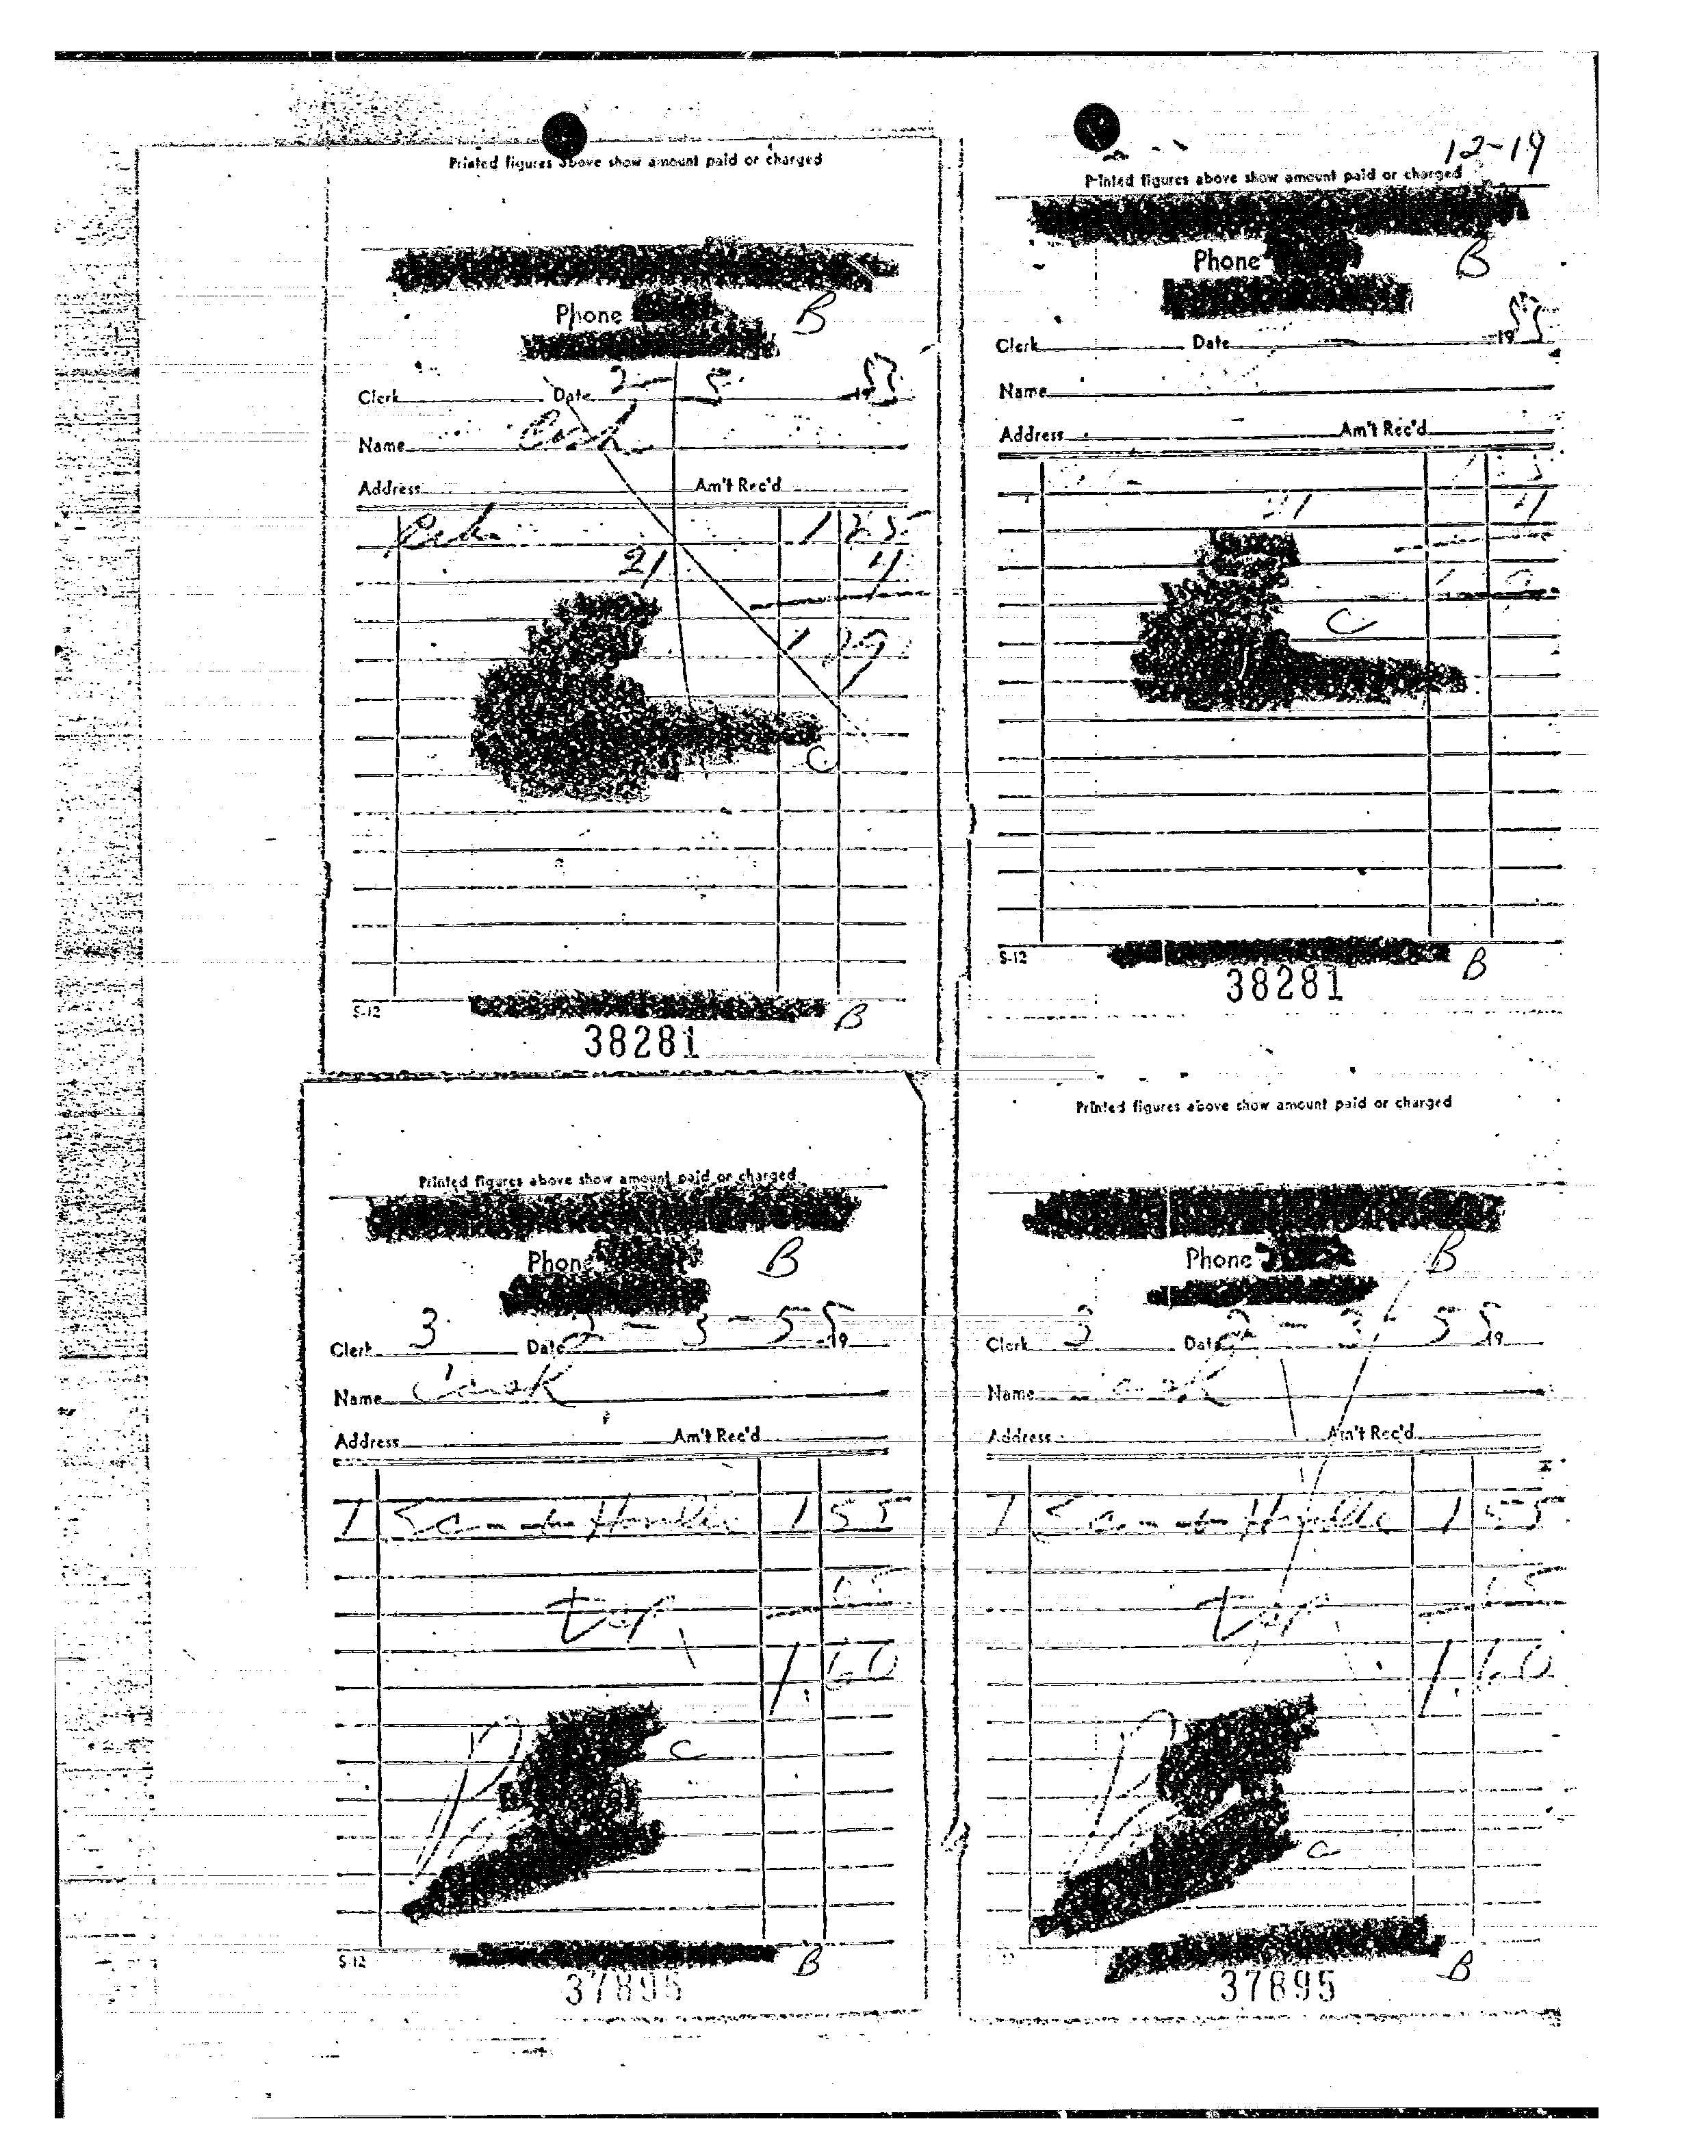 Printed figures above show amount paid or charged
Phone
B
Clerk Date 2-5 1955
Name Cash
Address Am't Rec'd
1 25
21 4
1 29
C
S-12 B
38281
12-19
Printed figures above show amount paid or charged
Phone
B
Clerk Date 1955
Name
Address Am't Rec'd
21 4
C
S-12 B
38281
Printed figures above show amount paid or charged
Phone
B
Clerk 3 Date 2-3-55 19
Name Cash
Address Am't Rec'd
1 Handle 1 55
05
1.60
C
S-12 B
37895
Printed figures above show amount paid or charged
Phone
B
Clerk 3 Date 2-3-55 19
Name Cash
Address Am't Rec'd
1 Handle 1 55
05
1.60
C
B
37895